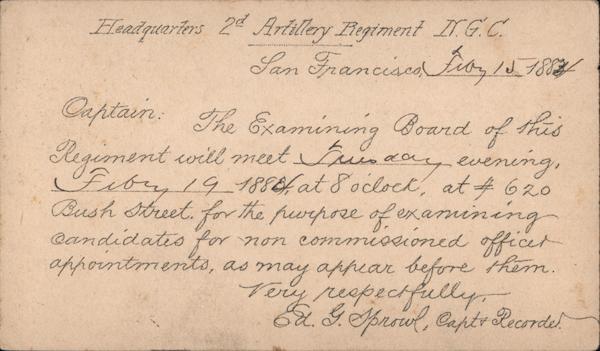 Headquarters 2d Artillery Regiment N.G.C.
San Francisco, Feby 15 1884
Captain:
The Examining Board of this
Regiment will meet Tuesday evening,
Feby 19 1884, at 8 oclock, at # 620
Bush Street. for the purpose of examining
candidates for non commissioned officer
appointments, as may appear before them.
Very respectfully,
Ed. G. Sprowl, Capt & Recorder.